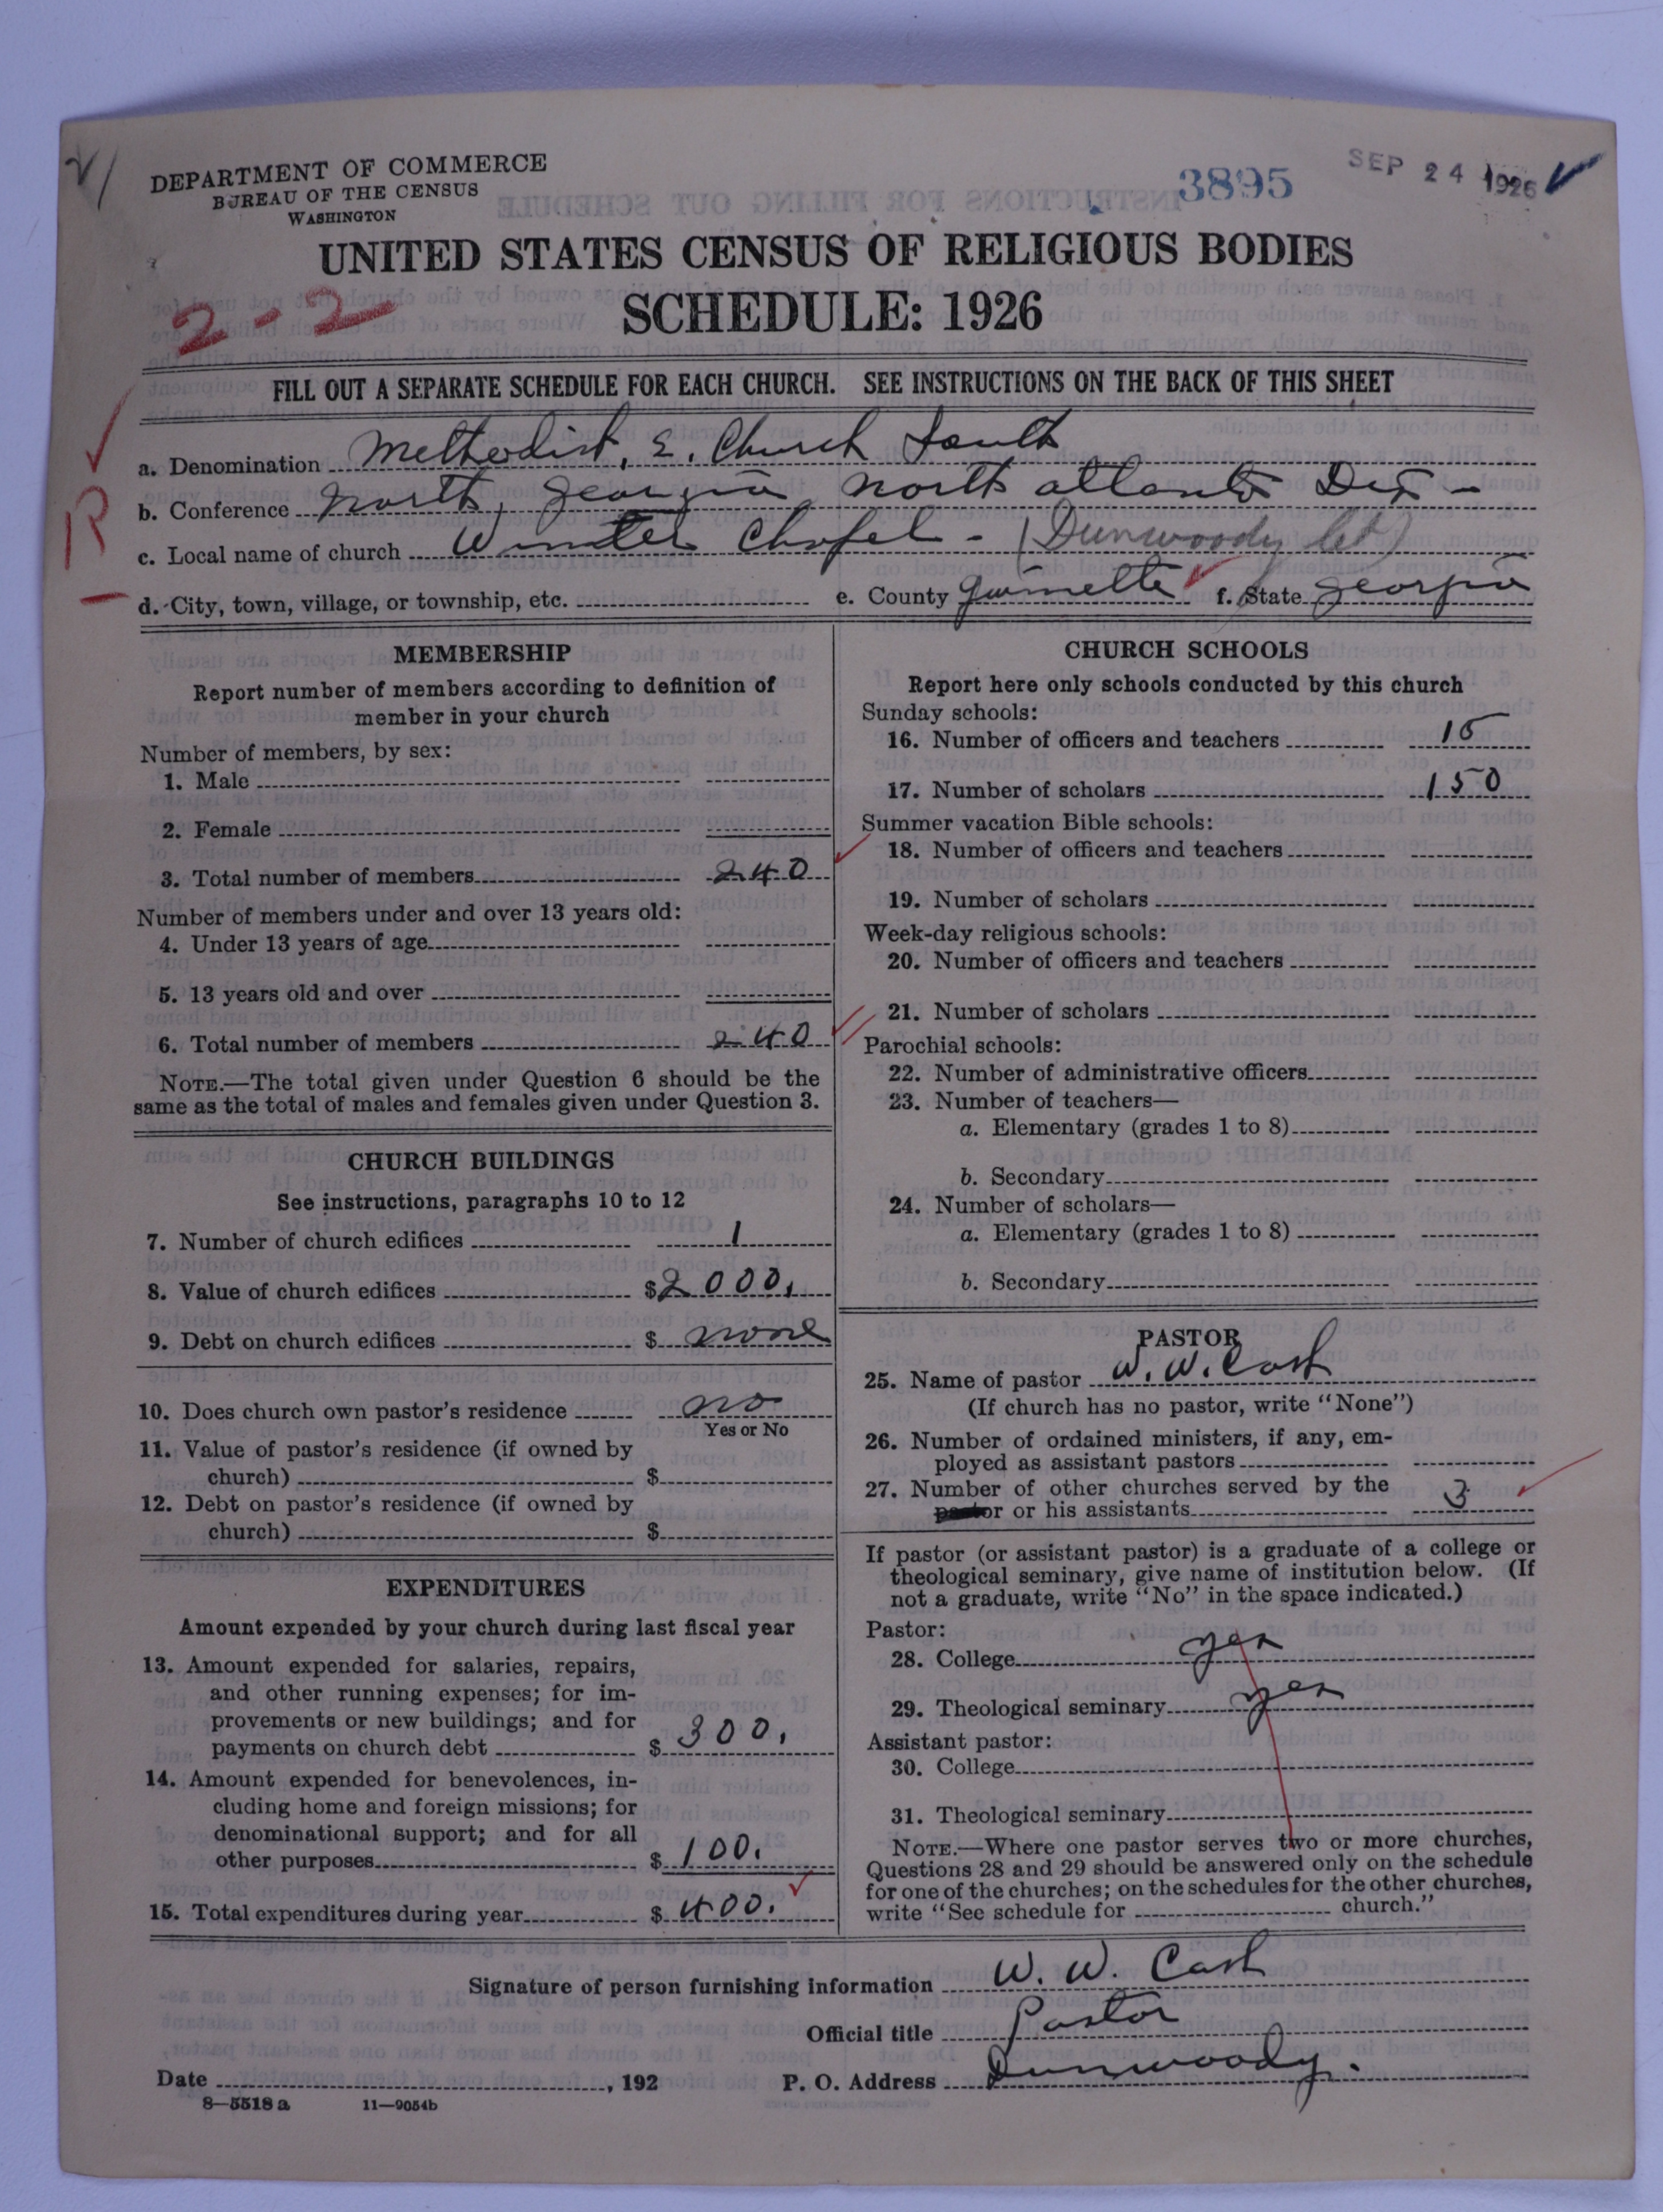 DEPARTMENT OF COMMERCE
BUREAU OF THE CENSUS
WASHINGTON
3895
SEP 24 1926
UNITED STATES CENSUS OF RELIGIOUS BODIES
2-2
SCHEDULE: 1926
FILL OUT A SEPARATE SCHEDULE FOR EACH CHURCH. SEE INSTRUCTIONS ON THE BACK OF THIS SHEET
a. Denomination Methodist, E. Church South
R
b. Conference North Georgia North Atlanta Dis-
c. Local name of church Winter Chapel - (Dunwoody
d. City, town, village, or township, etc. e. County Gwinnette f. State Georgia
MEMBERSHIP
Report number of members according to definition of
member in your church
Number of members, by sex:
1. Male
2. Female
3. Total number of members 240
Number of members under and over 13 years old:
4. Under 13 years of age
5. 13 years old and over
6. Total number of members 240
NOTE.—The total given under Question 6 should be the
same as the total of males and females given under Question 3.
CHURCH BUILDINGS
See instructions, paragraphs 10 to 12
7. Number of church edifices 1
8. Value of church edifices $2000.
9. Debt on church edifices $ none
10. Does church own pastor's residence no
Yes or No
11. Value of pastor's residence (if owned by
church) $
12. Debt on pastor's residence (if owned by
church) $
EXPENDITURES
Amount expended by your church during last fiscal year
13. Amount expended for salaries, repairs,
and other running expenses; for im-
provements or new buildings; and for
payments on church debt $ 300.
14. Amount expended for benevolences, in-
cluding home and foreign missions; for
denominational support; and for all
other purposes $ 100.
15. Total expenditures during year $ 400.
CHURCH SCHOOLS
Report here only schools conducted by this church
Sunday schools:
16. Number of officers and teachers 15
17. Number of scholars 150
Summer vacation Bible schools:
18. Number of officers and teachers
19. Number of scholars
Week-day religious schools:
20. Number of officers and teachers
21. Number of scholars
Parochial schools:
22. Number of administrative officers
23. Number of teachers—
a. Elementary (grades 1 to 8)
b. Secondary
24. Number of scholars—
a. Elementary (grades 1 to 8)
b. Secondary
PASTOR
25. Name of pastor W. W. Cash
(If church has no pastor, write "None")
26. Number of ordained ministers, if any, em-
ployed as assistant pastors
27. Number of other churches served by the 3
pastor or his assistants
If pastor (or assistant pastor) is a graduate of a college or
theological seminary, give name of institution below. (If
not a graduate, write "No" in the space indicated.)
Pastor:
28. College yes
29. Theological seminary yes
Assistant pastor:
30. College
31. Theological seminary
NOTE.—Where one pastor serves two or more churches,
Questions 28 and 29 should be answered only on the schedule
for one of the churches; on the schedules for the other churches,
write "See schedule for church."
Signature of person furnishing information W. W. Cash
Official title Pastor
Date , 192 P. O. Address Dunwoody.
8—5518 a 11—9054b